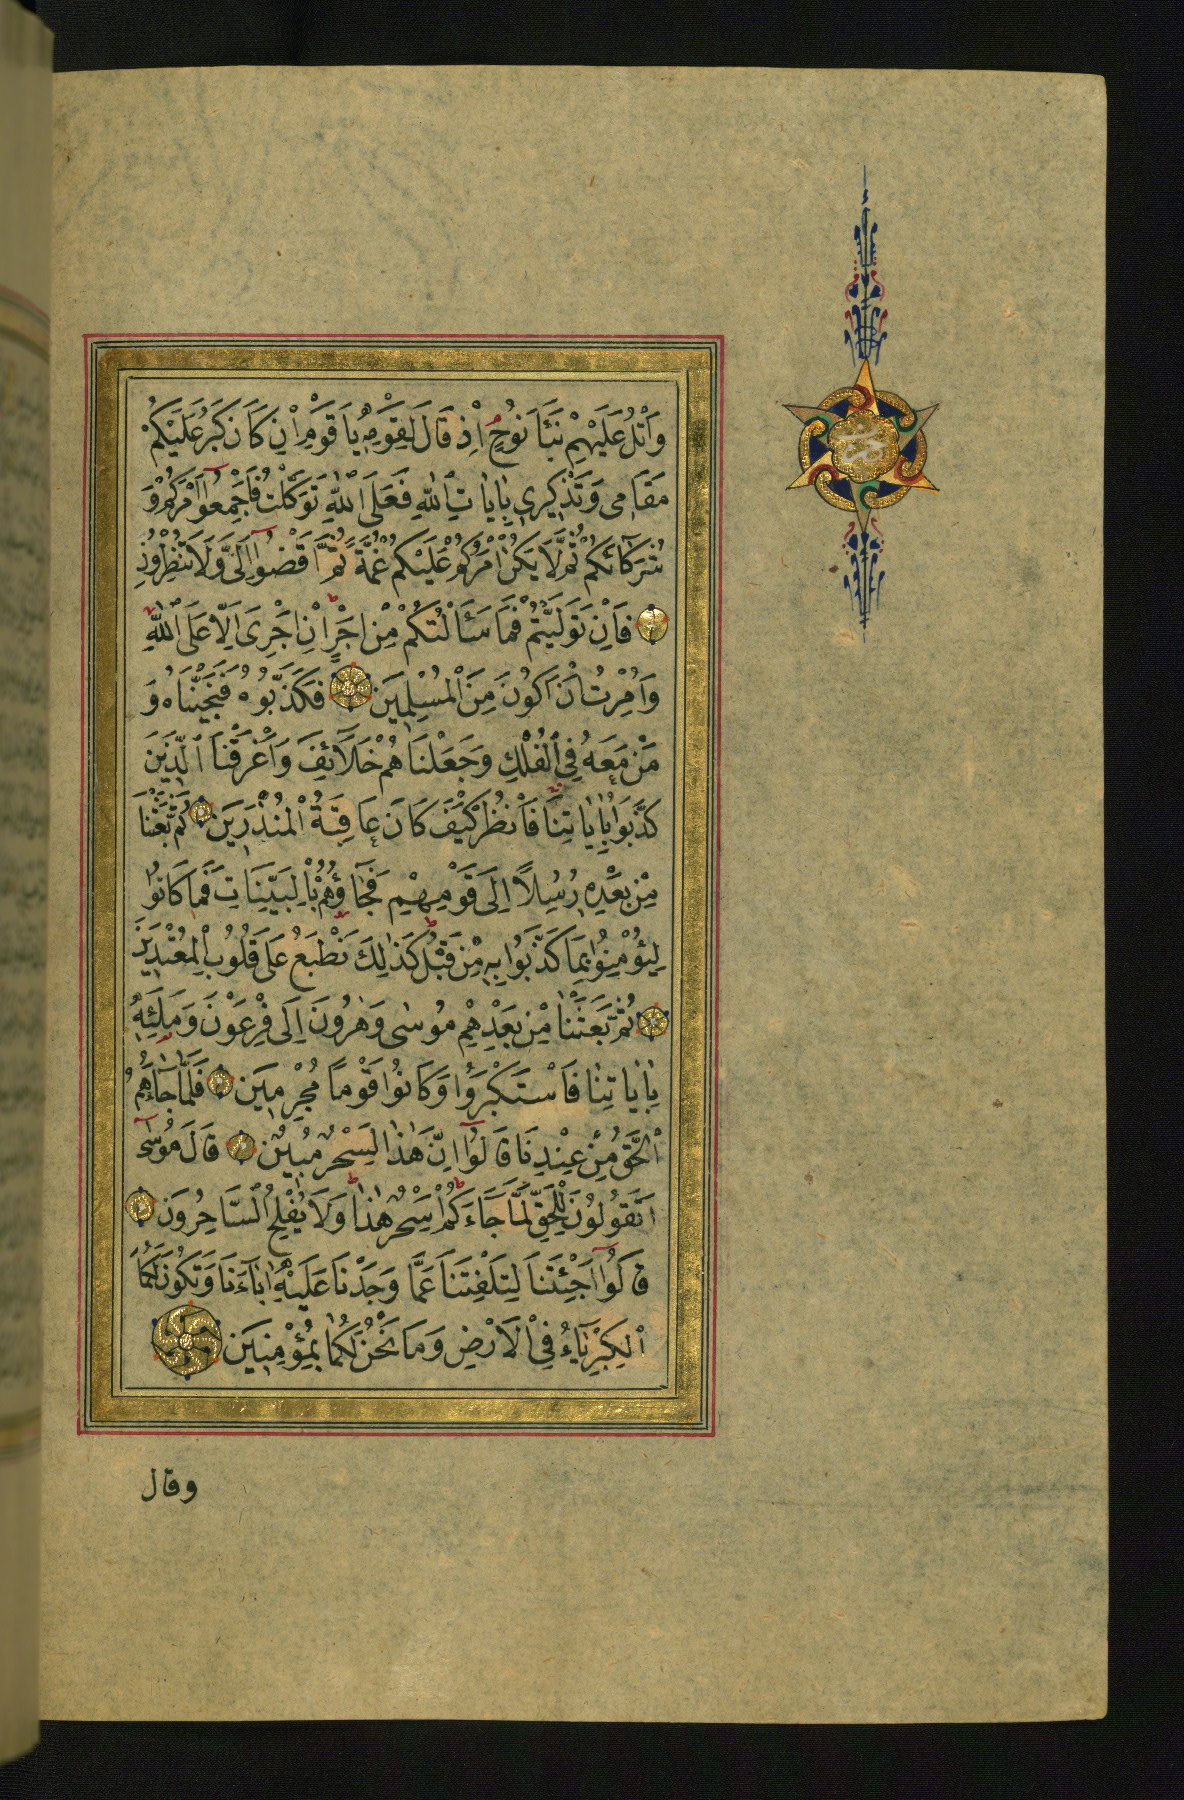 وَاتْلُ عَلَيْهِمْ نَبَأَ نُوحٍ اِذْ قَالَ لِقَوْمِهِ يَا قَوْمِ اِنْ كَانَ كَبُرَ عَلَيْكُمْ
مَقَامِى وَتَذْكِيرِى بِاٰيَاتِ اللّٰهِ فَعَلَى اللّٰهِ تَوَكَّلْتُ فَاَجْمِعُوٓا اَمْرَكُمْ وَ
شُرَكَٓائَكُمْ ثُمَّ لَا يَكُنْ اَمْرُكُمْ عَلَيْكُمْ غُمَّةً ثُمَّ اقْضُوٓا اِلَىَّ وَلَا تُنْظِرُونِ
فَاِنْ تَوَلَّيْتُمْ فَمَا سَأَلْتُكُمْ مِنْ اَجْرٍ اِنْ اَجْرِىَ اِلَّا عَلَى اللّٰهِ
وَاُمِرْتُ اَنْ اَكُونَ مِنَ الْمُسْلِمِينَ فَكَذَّبُوهُ فَنَجَّيْنَاهُ وَ
مَنْ مَعَهُ فِى الْفُلْكِ وَجَعَلْنَاهُمْ خَلَٓائِفَ وَاَغْرَقْنَا الَّذِينَ
كَذَّبُوا بِاٰيَاتِنَا فَانْظُرْ كَيْفَ كَانَ عَاقِبَةُ الْمُنْذَرِينَ ثُمَّ بَعَثْنَا
مِنْ بَعْدِهِ رُسُلًا اِلَى قَوْمِهِمْ فَجَٓاؤُهُمْ بِالْبَيِّنَاتِ فَمَا كَانُوا
لِيُؤْمِنُوا بِمَا كَذَّبُوا بِهِ مِنْ قَبْلُ كَذٰلِكَ نَطْبَعُ عَلَى قُلُوبِ الْمُعْتَدِينَ
ثُمَّ بَعَثْنَا مِنْ بَعْدِهِمْ مُوسٰى وَهٰرُونَ اِلَى فِرْعَوْنَ وَمَلَئِهِ
بِاٰيَاتِنَا فَاسْتَكْبَرُوا وَكَانُوا قَوْمًا مُجْرِمِينَ فَلَمَّا جَٓاءَهُمُ
الْحَقُّ مِنْ عِنْدِنَا قَالُوٓا اِنَّ هٰذَا لَسِحْرٌ مُبِينٌ قَالَ مُوسٰٓى
اَتَقُولُونَ لِلْحَقِّ لَمَّا جَٓاءَكُمْ اَسِحْرٌ هٰذَا وَلَا يُفْلِحُ السَّاحِرُونَ
قَالُوٓا اَجِئْتَنَا لِتَلْفِتَنَا عَمَّا وَجَدْنَا عَلَيْهِ اٰبَٓاءَنَا وَتَكُونَ لَكُمَا
الْكِبْرِيَٓاءُ فِى الْاَرْضِ وَمَا نَحْنُ لَكُمَا بِمُؤْمِنِينَ
وقال